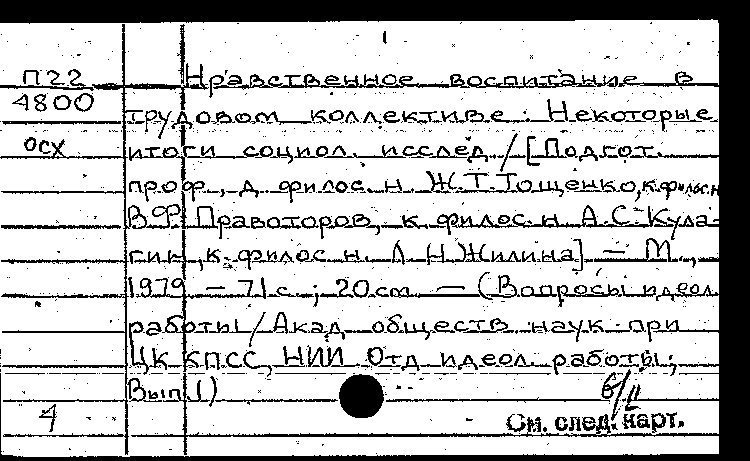 1
П22
4800
осх
Нравственное воспитание в
трудовом коллективе: Некоторые
итоги социол. исслед / [Подгот.
проф., д. филос. н. Ж.Т.Тощенко, к.филос.н
В.Ф. Правоторов, к. филос. н. А.С. Кула-
гин, к. филос. н. Л.Н.Жилина] — М.,
1979 — 71 с.; 20 см — (Вопросы идеол.
работы / Акад. обществ. наук при
ЦК КПСС, НИИ Отд идеол. работы;
Вып. 1)
б/п
4
См. след. карт.